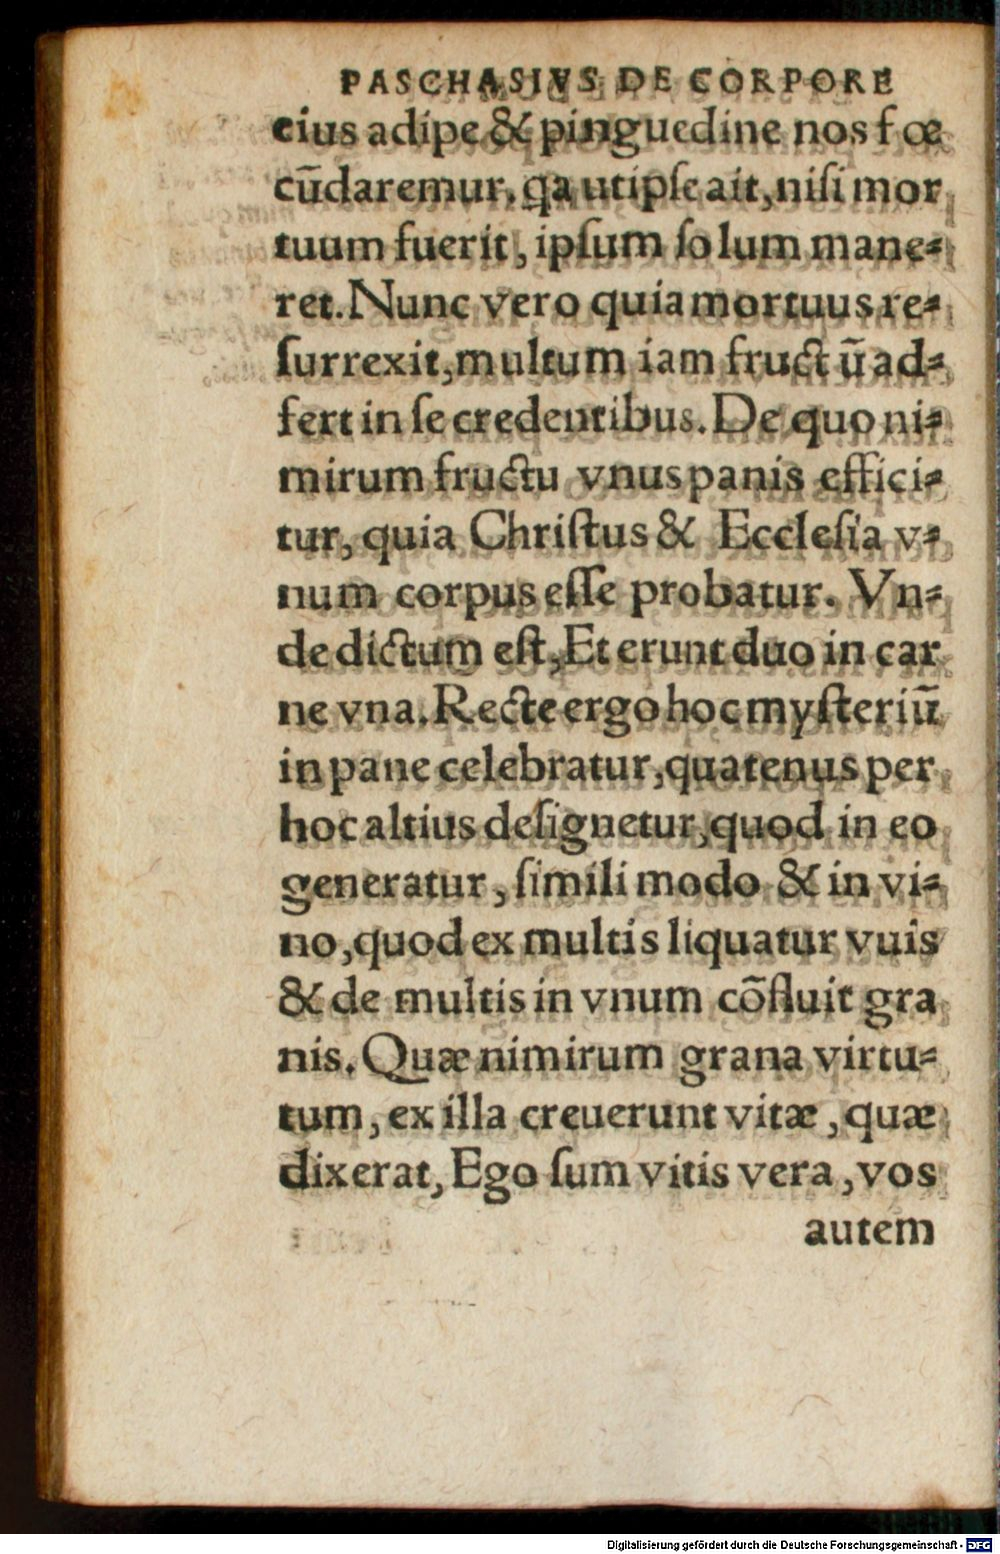 PASCHASIVS DE CORPORE
eius adipe & pinguedine nos fœ
cūdaremur, qa ut ipſe ait, niſi mor
tuum fuerit, ipſum ſolum mane-
ret. Nunc vero quia mortuus re-
ſurrexit, multum iam fructū ad-
fert in ſe credentibus. De quo ni-
mirum fructu vnus panis effici-
tur, quia Chriſtus & Eccleſia v-
num corpus eſſe probatur. Vn-
de dictum eſt, Et erunt duo in car
ne vna. Recte ergo hoc myſteriū
in pane celebratur, quatenus per
hoc altius deſignetur, quod in eo
generatur, ſimili modo & in vi-
no, quod ex multis liquatur vuis
& de multis in vnum cōfluit gra
nis. Quæ nimirum grana virtu-
tum, ex illa creuerunt vitæ, quæ
dixerat, Ego ſum vitis vera, vos
autem
Digitalisierung gefördert durch die Deutsche Forschungsgemeinschaft - DFG